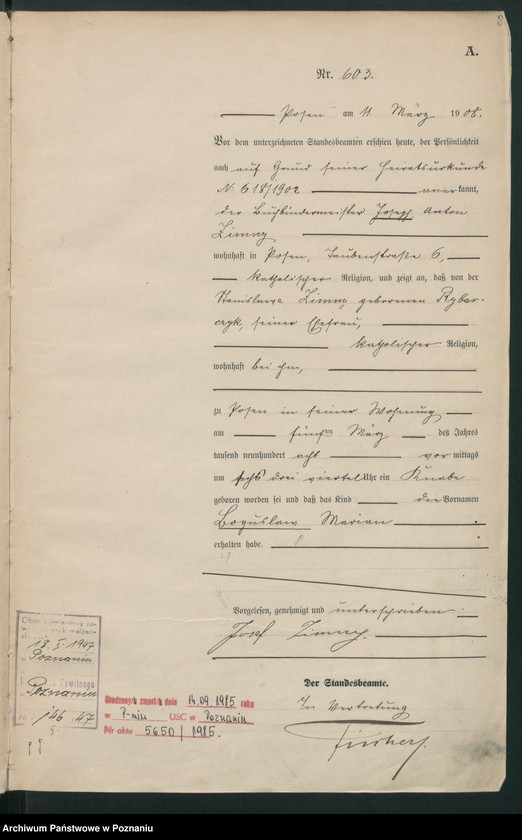 A.
Nr. 603.
Posen am 11 März 1908.
Vor dem unterzeichneten Standesbeamten erschien heute, der Persönlichkeit
nach auf Grund seiner Heiratsurkunde
N: 618/1902 anerkannt,
der Buchbindermeister Joseph Anton
Zimny
wohnhaft in Posen, Taubenstraße 6,
katholischer Religion, und zeigt an, daß von der
Stanislawa Zimny geborenen Rybar-
czyk, seiner Ehefrau,
katholischer Religion,
wohnhaft bei ihm,
zu Posen in seiner Wohnung
am fünften März des Jahres
tausend neunhundert acht vormittags
um sechs drei viertel Uhr ein Knabe
geboren worden sei und daß das Kind die Vornamen
Boguslaw Marian
erhalten habe.
Vorgelesen, genehmigt und unterschrieben:
Josef Zimny.
Der Standesbeamte.
In Vertretung
18. I. 1947
Poznaniu
Cywilnego
Poznaniu
146 47
Urodzonych zmarł dnia 14.09.1985 roku
w P-niu USC w Poznaniu
Nr aktu 5650/1985.
Archiwum Państwowe w Poznaniu